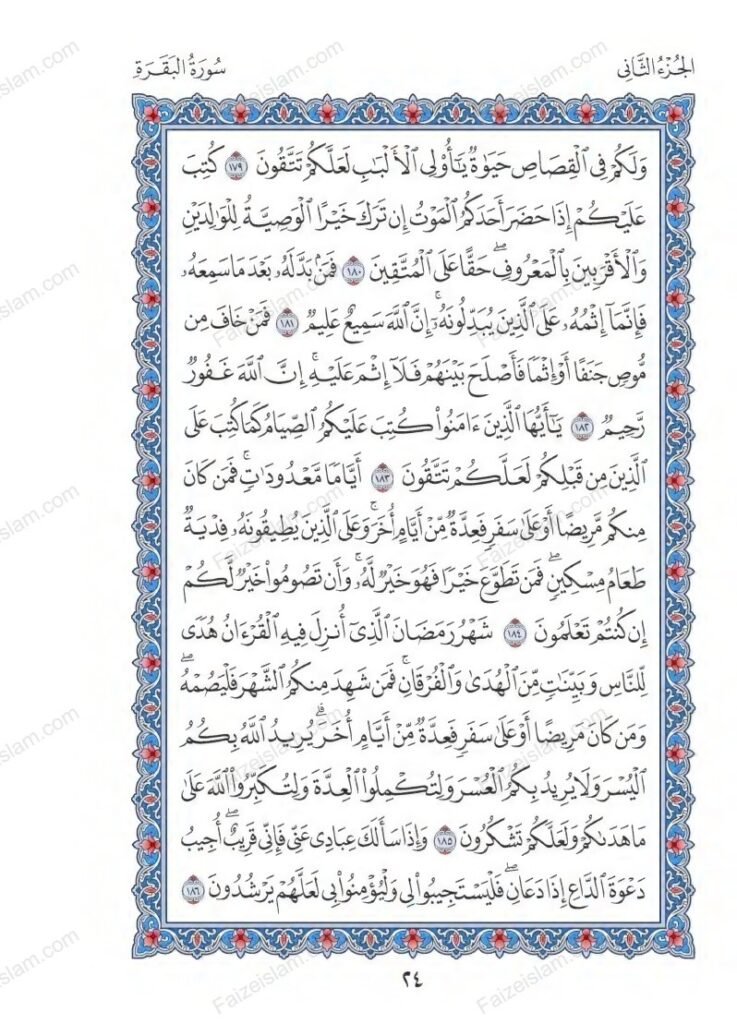 الجُزْءُ الثَّانِي
سُورَةُ البَقَرَةِ
وَلَكُمْ فِي ٱلْقِصَاصِ حَيَوٰةٌ يَـٰٓأُوْلِي ٱلْأَلْبَـٰبِ لَعَلَّكُمْ تَتَّقُونَ ١٧٩ كُتِبَ
عَلَيْكُمْ إِذَا حَضَرَ أَحَدَكُمُ ٱلْمَوْتُ إِن تَرَكَ خَيْرًا ٱلْوَصِيَّةُ لِلْوَٰلِدَيْنِ
وَٱلْأَقْرَبِينَ بِٱلْمَعْرُوفِۖ حَقًّا عَلَى ٱلْمُتَّقِينَ ١٨٠ فَمَنۢ بَدَّلَهُۥ بَعْدَ مَا سَمِعَهُۥ
فَإِنَّمَآ إِثْمُهُۥ عَلَى ٱلَّذِينَ يُبَدِّلُونَهُۥٓۚ إِنَّ ٱللَّهَ سَمِيعٌ عَلِيمٌ ١٨١ فَمَنْ خَافَ مِن
مُّوصٍ جَنَفًا أَوْ إِثْمًا فَأَصْلَحَ بَيْنَهُمْ فَلَآ إِثْمَ عَلَيْهِۚ إِنَّ ٱللَّهَ غَفُورٌ
رَّحِيمٌ ١٨٢ يَـٰٓأَيُّهَا ٱلَّذِينَ ءَامَنُوا۟ كُتِبَ عَلَيْكُمُ ٱلصِّيَامُ كَمَا كُتِبَ عَلَى
ٱلَّذِينَ مِن قَبْلِكُمْ لَعَلَّكُمْ تَتَّقُونَ ١٨٣ أَيَّامًا مَّعْدُودَٰتٍۚ فَمَن كَانَ
مِنكُم مَّرِيضًا أَوْ عَلَىٰ سَفَرٍ فَعِدَّةٌ مِّنْ أَيَّامٍ أُخَرَۚ وَعَلَى ٱلَّذِينَ يُطِيقُونَهُۥ فِدْيَةٌ
طَعَامُ مِسْكِينٍۖ فَمَن تَطَوَّعَ خَيْرًا فَهُوَ خَيْرٌ لَّهُۥۚ وَأَن تَصُومُوا۟ خَيْرٌ لَّكُمْ
إِن كُنتُمْ تَعْلَمُونَ ١٨٤ شَهْرُ رَمَضَانَ ٱلَّذِيٓ أُنزِلَ فِيهِ ٱلْقُرْءَانُ هُدًى
لِّلنَّاسِ وَبَيِّنَـٰتٍ مِّنَ ٱلْهُدَىٰ وَٱلْفُرْقَانِۚ فَمَن شَهِدَ مِنكُمُ ٱلشَّهْرَ فَلْيَصُمْهُۖ
وَمَن كَانَ مَرِيضًا أَوْ عَلَىٰ سَفَرٍ فَعِدَّةٌ مِّنْ أَيَّامٍ أُخَرَۗ يُرِيدُ ٱللَّهُ بِكُمُ
ٱلْيُسْرَ وَلَا يُرِيدُ بِكُمُ ٱلْعُسْرَ وَلِتُكْمِلُوا۟ ٱلْعِدَّةَ وَلِتُكَبِّرُوا۟ ٱللَّهَ عَلَىٰ
مَا هَدَىٰكُمْ وَلَعَلَّكُمْ تَشْكُرُونَ ١٨٥ وَإِذَا سَأَلَكَ عِبَادِي عَنِّي فَإِنِّي قَرِيبٌۖ أُجِيبُ
دَعْوَةَ ٱلدَّاعِ إِذَا دَعَانِۖ فَلْيَسْتَجِيبُوا۟ لِي وَلْيُؤْمِنُوا۟ بِي لَعَلَّهُمْ يَرْشُدُونَ ١٨٦
٢٤
Faizeislam.com